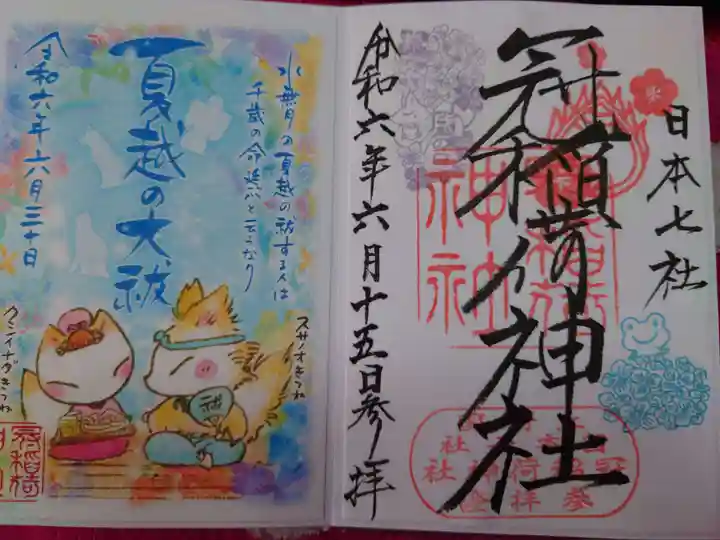 日本七社
冠稲荷神社
令和六年六月十五日参拝
水無月の夏越の祓する人は
千歳の命延ぶと云うなり
夏越の大祓
令和六年六月三十日
スサノオきつね
クシイナダきつね
祓
神社
冠稲荷